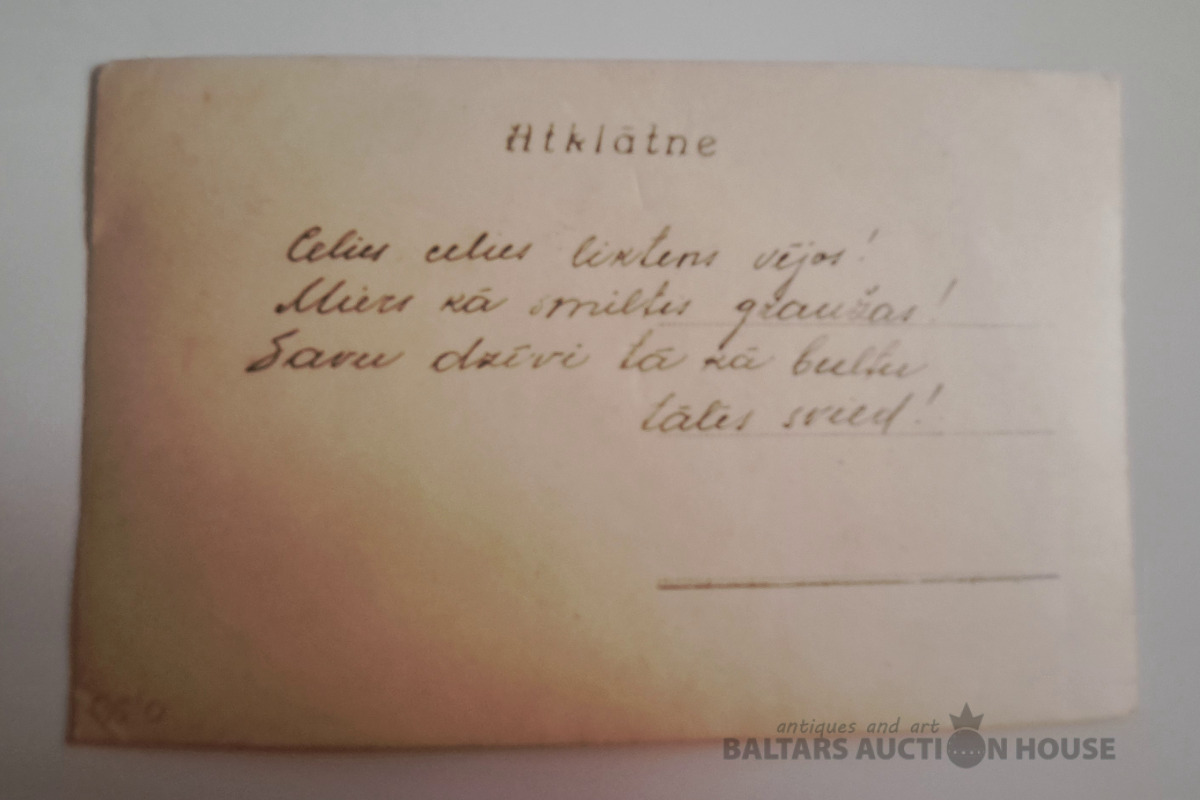 Atklātne
Celies celies likteņs vējos!
Miers kā smiltis graužas!
Savu dzīvi tā kā bultu
tāles svied!
antiques and art
BALTARS AUCTION HOUSE